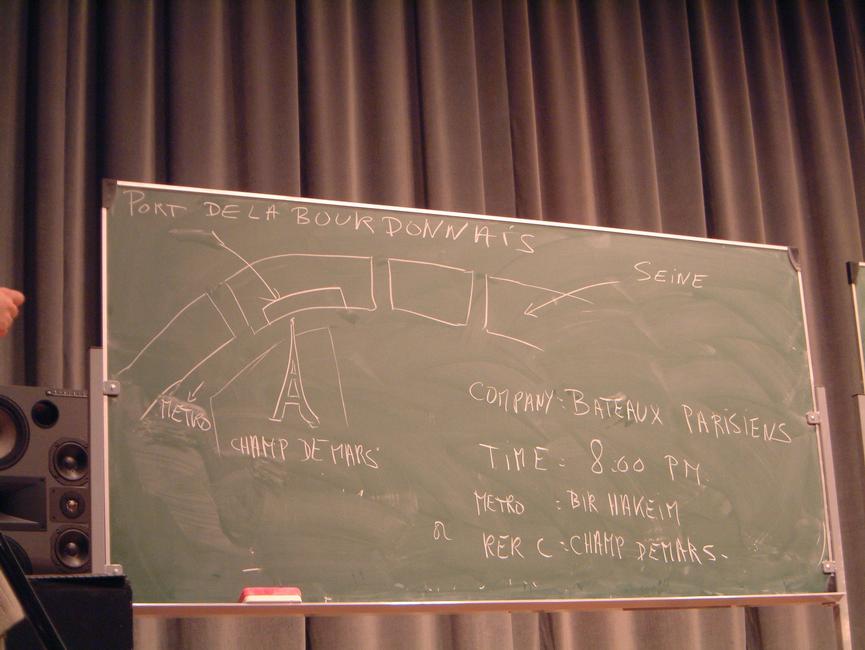 PORT DE LA BOURDONNAIS
SEINE
METRO
CHAMP DE MARS
COMPANY: BATEAUX PARISIENS
TIME: 8:00 PM.
METRO : BIR HAKEIM
or
RER C : CHAMP DE MARS.